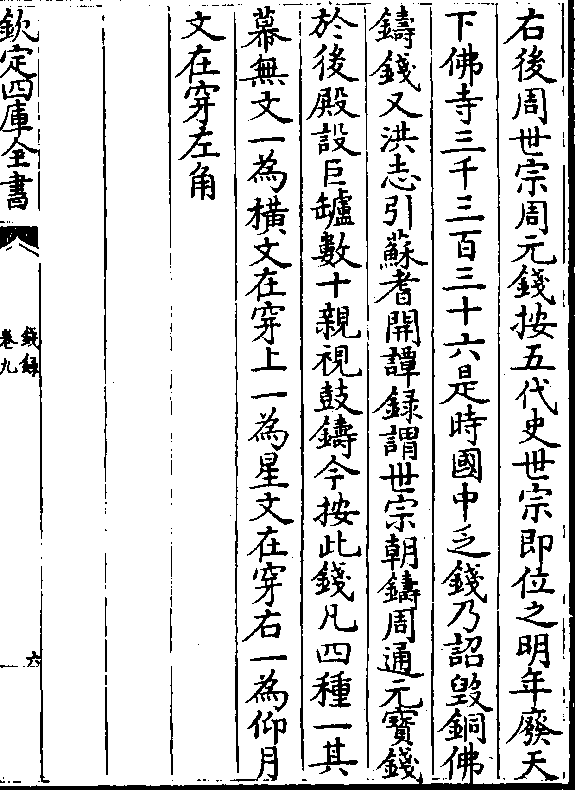 右後周世宗周元錢按五代史世宗即位之明年廢天
下佛寺三千三百三十六是時國中乏錢乃詔毁銅佛
鑄錢又洪志引蘇耆開譚録謂世宗朝鑄周通元寳錢
於後殿設巨罏數十親視鼓鑄今按此錢凡四種一其
幕無文一為横文在穿上一為星文在穿右一為仰月
文在穿左角
欽定四庫全書
錢録
卷九
六